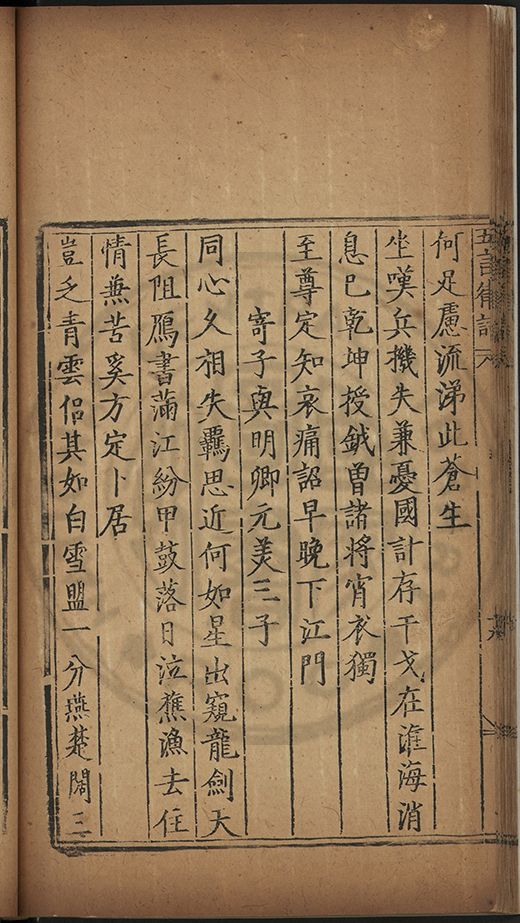 何足慮流涕此蒼生
坐嘆兵機失兼憂國計存干戈在淮海消
息已乾坤授鉞曾諸将宵衣獨
至尊定知哀痛詔早晚下江門
寄子與明卿元美三子
同心久相失羈思近何如星出窺龍劍天
長阻鴈書滿江紛甲鼓落日泣樵漁去住
情無苦奚方定卜居
豈乏青雲侶其如白雪盟一分燕楚闊三